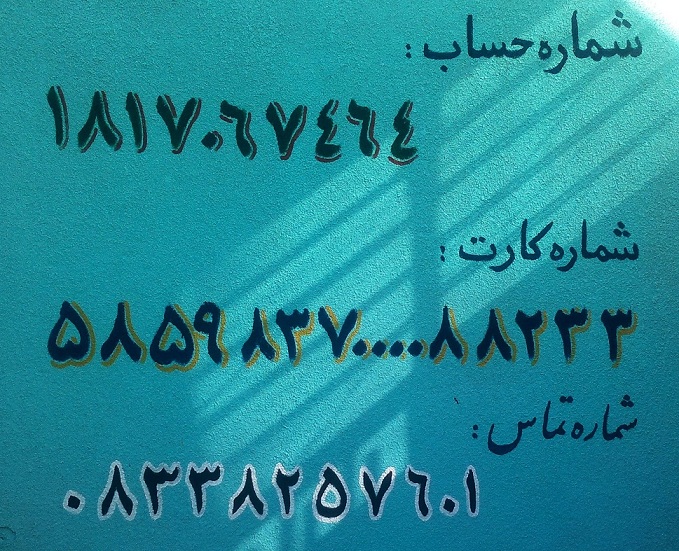 شماره حساب :
۱۸۱۷۰۶۷۴۶۴
شماره کارت :
۵۸۵۹۸۳۷۰۰۰۰۸۸۲۳۳
شماره تماس :
۰۸۳۳۸۲۵۷۶۰۱